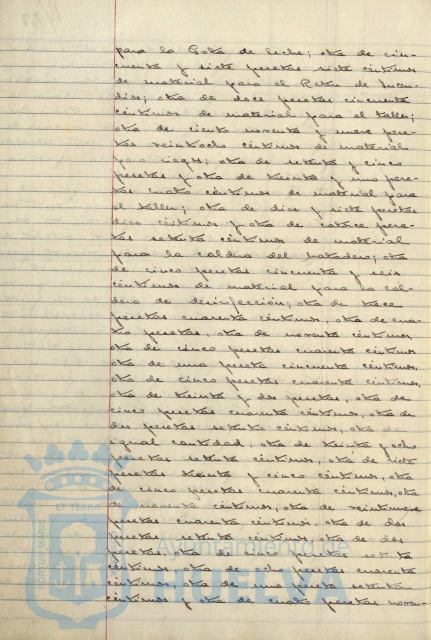 para la Gota de leche; otra de cin-
cuenta y siete pesetas siete céntimos
de material para el Retén de Incen-
dios; otra de doce pesetas cincuenta
céntimos de material para el taller;
otra de ciento noventa y nueve pese-
tas veintiocho céntimos de material
para riegos; otra de setenta y cinco
pesetas y otra de treinta y una pese-
tas cuatro céntimos de material para
el taller; otra de diez y siete pesetas
diez céntimos y otra de catorce pese-
tas setenta céntimos de material
para la caldera del matadero; otra
de cinco pesetas cincuenta y seis
céntimos de material para la cal-
dera de desinfección; otra de trece
pesetas cuarenta céntimos, otra de cua-
tro pesetas, otra de noventa céntimos,
otra de cinco pesetas cuarenta céntimos
otra de una peseta cincuenta céntimos,
otra de cinco pesetas cuarenta céntimos,
otra de treinta y dos pesetas, otra de
cinco pesetas cuarenta céntimos, otra de
dos pesetas setenta céntimos, otra de
igual cantidad, otra de treinta y ocho
pesetas setenta céntimos, otra de siete
pesetas treinta y cinco céntimos, otra
de cinco pesetas cuarenta céntimos, otra
de noventa céntimos, otra de veintinueve
pesetas cuarenta céntimos, otra de dos
pesetas setenta céntimos, otra de dos
pesetas otra de pesetas setenta
céntimos otra de ocho pesetas cuarenta
céntimos, otra de una peseta setenta
céntimos y otra de cuatro pesetas noven-
Ayuntamiento de
HUELVA